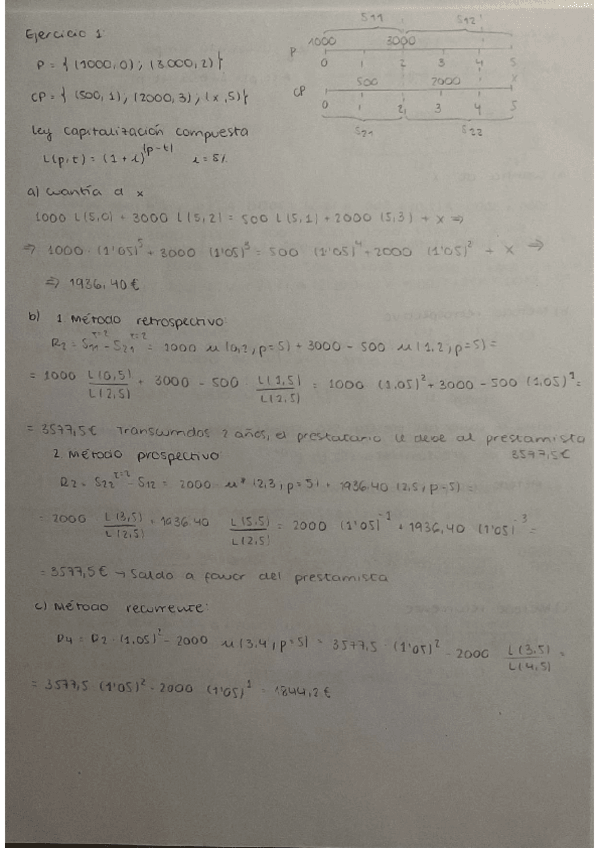 Ejercicio 1:
S11 S12
P 1000 3000
0 1 2 3 4 5
P = { (1000,0) ; (3000,2) }
CP = { (500,1) ; (2000,3) ; (x,5) }
CP 500 2000 x
0 1 2 3 4 5
S21 S22
Ley capitalización compuesta
L(p,t) = (1+i)^(p-t) i = 5%
a) cuantía d x
1000 L(5,0) + 3000 L(5,2) = 500 L(5,1) + 2000 (5,3) + x ⇒
⇒ 1000 · (1'05)^5 + 3000 · (1'05)^3 = 500 · (1'05)^4 + 2000 (1'05)^2 + x ⇒
⇒ 1936,40 €
b) 1 Método retrospectivo:
R2 = S11^τ=2 - S21^τ=2 = 1000 u(0,2,p=5) + 3000 - 500 u(1,2,p=5) =
= 1000 L(0,5)/L(2,5) + 3000 - 500 L(1,5)/L(2,5) = 1000 (1.05)^2 + 3000 - 500 (1.05)^1 =
= 3577,5€ Transcurridos 2 años, el prestatario le debe al prestamista
3577,5€
2 Método prospectivo
R2 = S22^τ=2 - S12 = 2000 u*(2,3,p=5) + 1936.40 (2,5,p=5) =
= 2000 L(3,5)/L(2,5) + 1936.40 L(5,5)/L(2,5) = 2000 (1'05)^-1 + 1936,40 (1'05)^-3 =
= 3577,5€ → Saldo a favor del prestamista
c) Método recurrente:
R4 = R2 · (1.05)^2 - 2000 u(3,4,p=5) = 3577,5 (1'05)^2 - 2000 L(3,5)/L(4,5) =
= 3577,5 (1'05)^2 - 2000 (1'05)^1 = 1844,2€